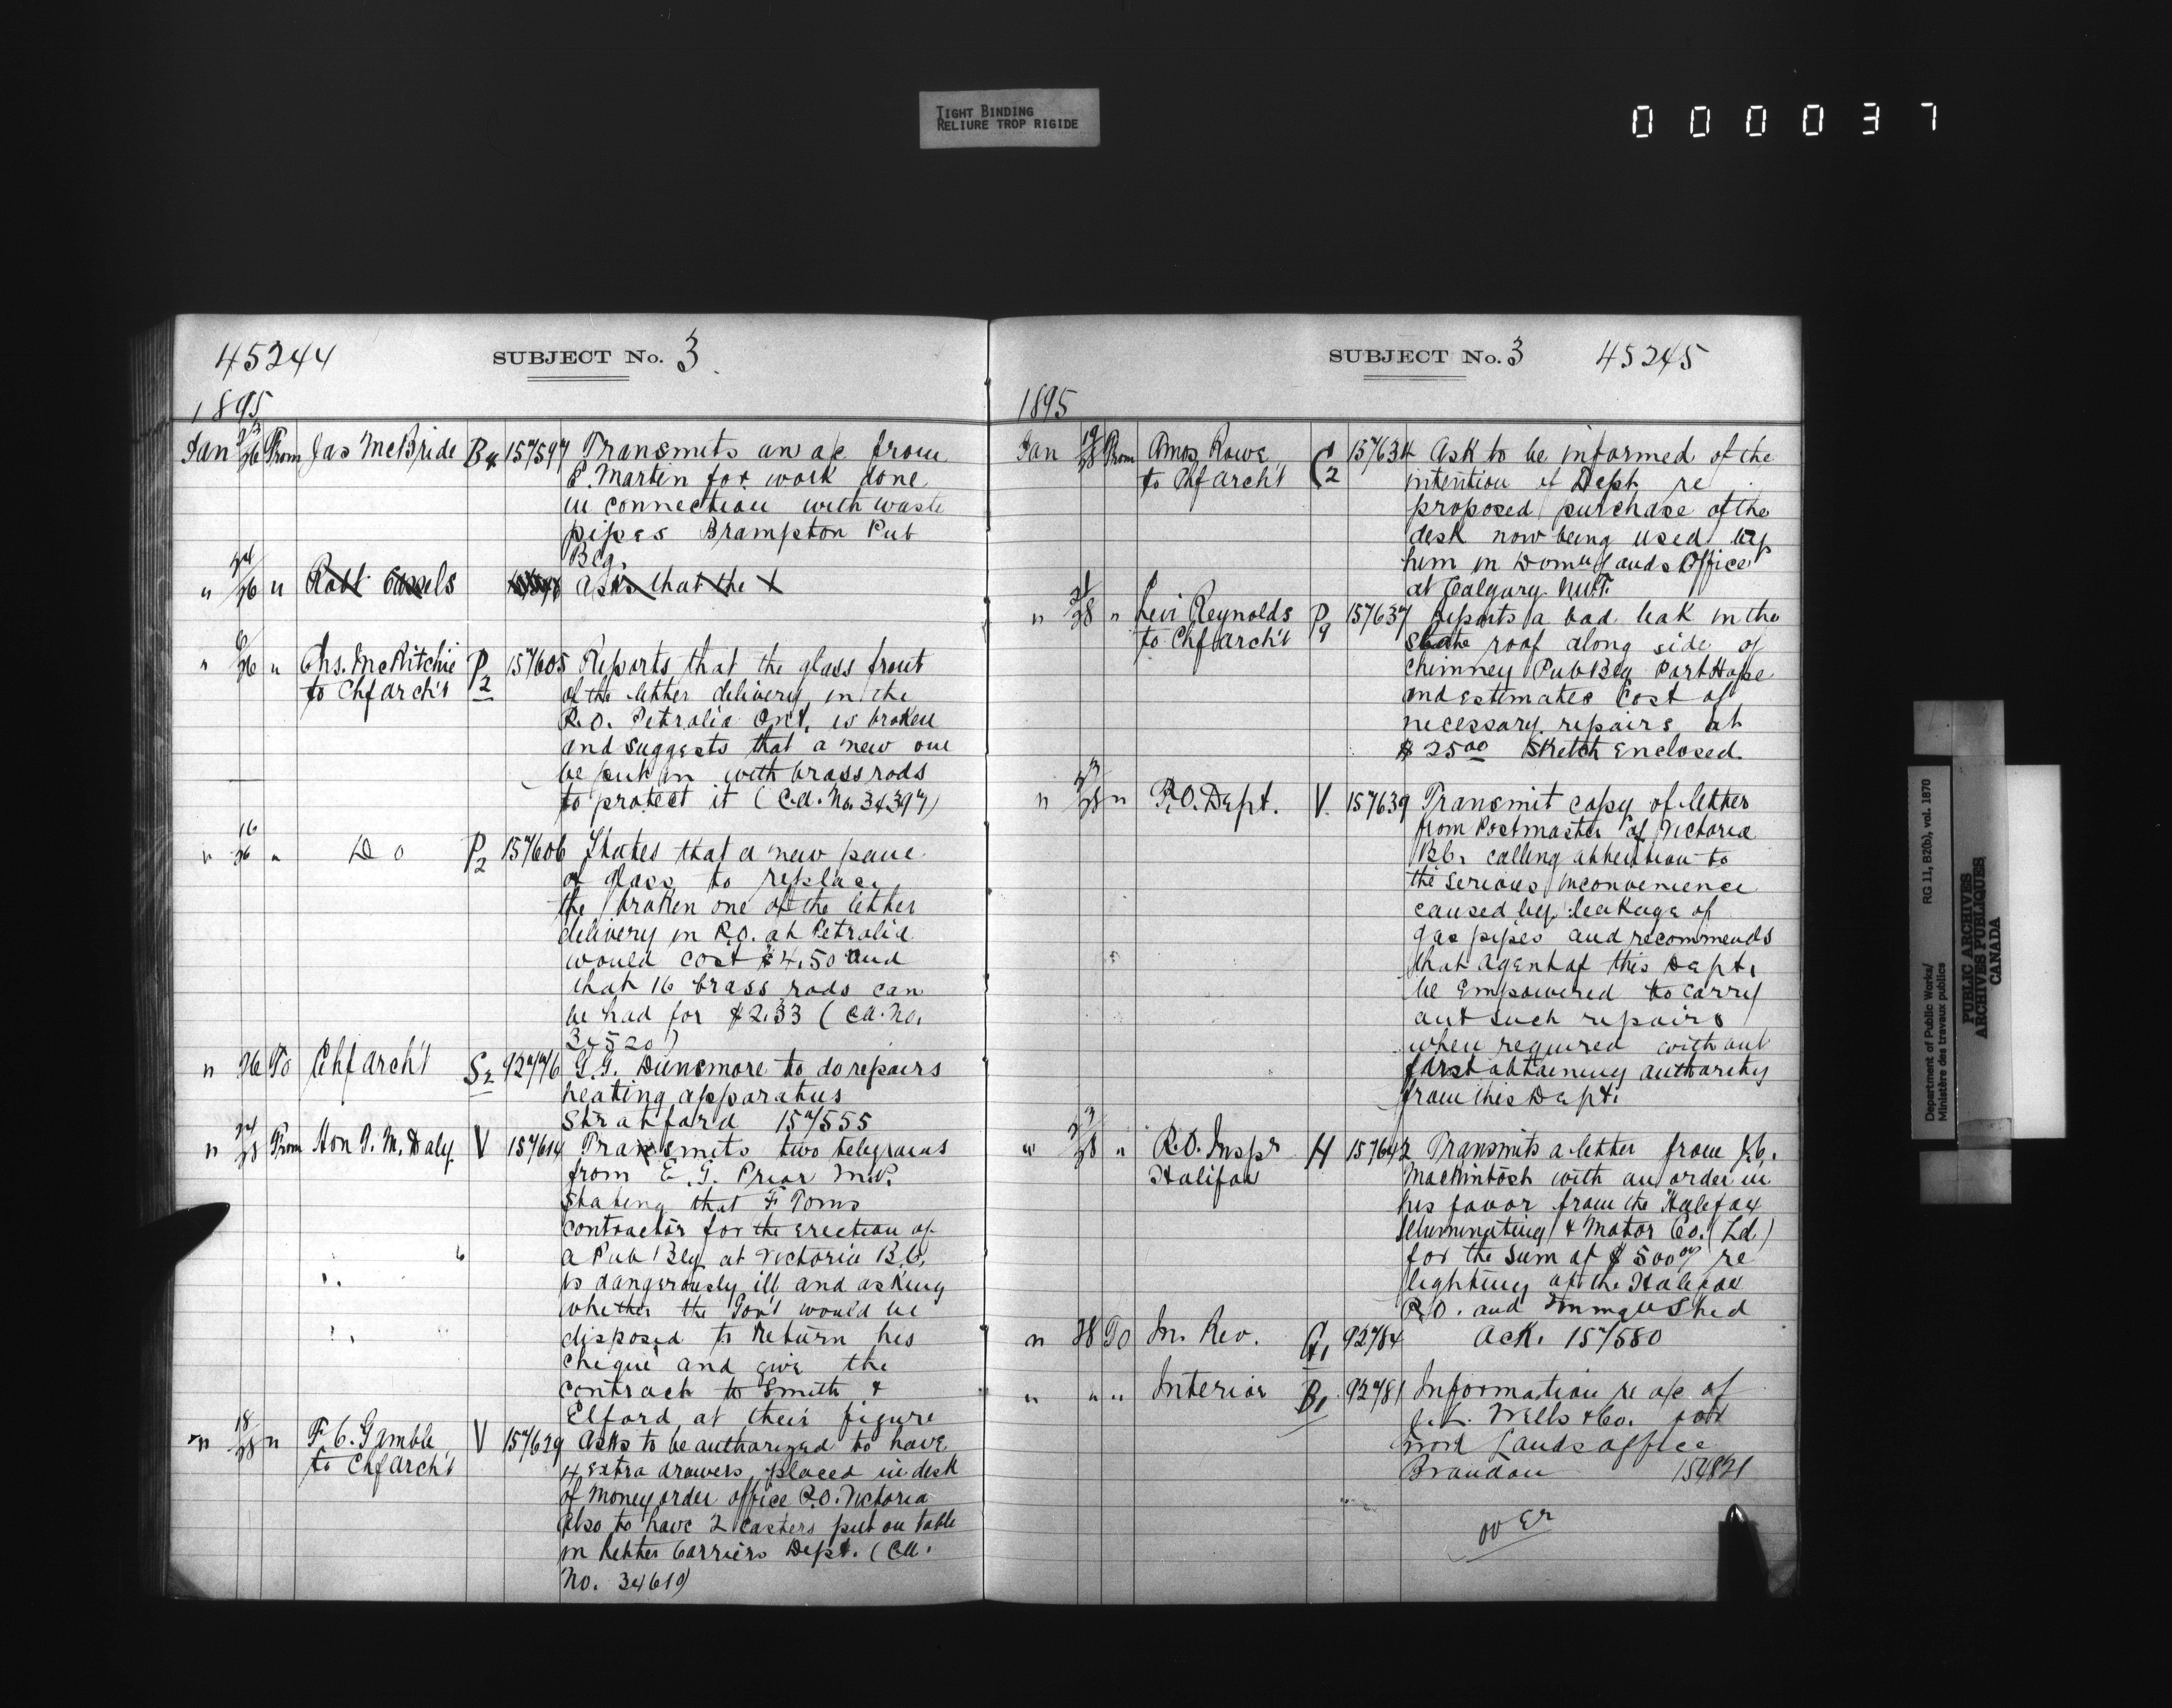 TIGHT BINDING
RELIURE TROP RIGIDE
000037
45244 SUBJECT No. 3
1895
Jan 23/26 From Jas McBride B4 157597 Transmits an a/c from
E. Martin for work done
in connection with waste
pipes Brampton Pub
Blg.
" 24/26 " Robt Cassels Asks that the
" 6/26 " Chs. McRitchie P2 157605 Reports that the glass front
to Chf Arch't of the letter delivery in the
P.O. Petrolia Ont. is broken
and suggests that a new one
be put in with brass rods
to protect it (C.A. No. 34397)
" 16/26 " Do P2 157606 States that a new pane
of glass to replace
the broken one of the letter
delivery in P.O. at Petrolia
would cost $4.50 and
that 16 brass rods can
be had for $2.33 (C.A. No.
34520)
" 26 To Chf Arch't S2 92776 G.G. Dunsmore to do repairs
heating apparatus
Stratford 157555
" 24/28 From Hon T. M. Daly V 157614 Transmits two telegrams
from E. G. Prior M.P.
stating that F Toms
contractor for the erection of
a Pub Blg at Victoria B.C.
is dangerously ill and asking
whether the Gov't would be
disposed to return his
cheque and give the
contract to Smith &
Elford at their figure
" 18/28 " F. C. Gamble V 157629 Asks to be authorized to have
to Chf Arch't 4 extra drawers placed in desk
of Money order office P.O. Victoria
Also to have 2 casters put on table
in Letter Carriers Dept. (C.A.
No. 34610)
SUBJECT No. 3 45245
1895
Jan 19/28 From Amos Rowe C2 157634 Ask to be informed of the
to Chf Arch't intention of Dept re
proposed purchase of the
desk now being used by
him in Dom'n Lands Office
at Calgary N.W.T.
" 21/28 " Levi Reynolds P9 157637 Reports a bad leak in the
to Chf Arch't slate roof along side of
chimney Pub Blg Port Hope
and estimates cost of
necessary repairs at
$25.00 Sketch enclosed.
" 23/28 " P.O. Dept. V. 157639 Transmit copy of letter
from Postmaster of Victoria
B.C. calling attention to
the serious inconvenience
caused by leakage of
gas pipes and recommends
that agent of this Dept.
be empowered to carry
out such repairs
when required without
first obtaining authority
from this Dept.
" 23/28 " P.O. Inspr H 157642 Transmits a letter from
Halifax MacKintosh with an order in
his favor from the Halifax
Illuminating & Motor Co. (Ld)
for the sum of $500.00 re
lighting of the Halifax
P.O. and Immg'n Shed
" 28 To In. Rev. G1 92784 Ack. 157580
" " " Interior B1 92781 Information re a/c of
Wells & Co. for
Lands office
Brandon 154821
over
Department of Public Works/ RG 11, B2(b), vol. 1870
Ministère des travaux publics
PUBLIC ARCHIVES
ARCHIVES PUBLIQUES
CANADA